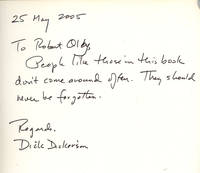 25 May 2005
To Robert Olby,
People like those in this book
don't come around often. They should
never be forgotten.
Regards,
Dick Dickerson